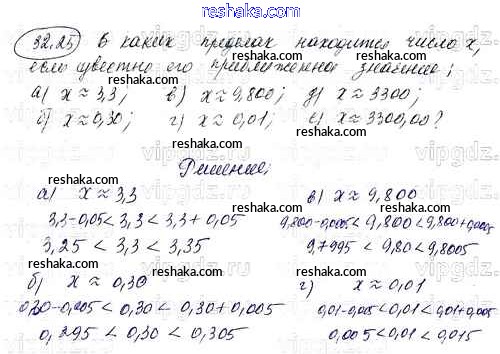 reshaka.com
32.25 В каких пределах находится число x,
если известно его приближенное значение:
reshaka.com
а) x ≈ 3,3; в) x ≈ 9,800; д) x ≈ 3300;
б) x ≈ 0,30; г) x ≈ 0,01; е) x ≈ 3300,00?
reshaka.com
Решение:
reshaka.com
а) x ≈ 3,3 в) x ≈ 9,800
reshaka.com
3,3-0,05 < 3,3 < 3,3 + 0,05 9,800-0,0005 < 9,800 < 9,800+0,0005
3,25 < 3,3 < 3,35 9,7995 < 9,80 < 9,8005
reshaka.com
б) x ≈ 0,30 г) x ≈ 0,01
reshaka.com
0,30-0,005 < 0,30 < 0,30 + 0,005 0,01-0,005 < 0,01 < 0,01+0,005
0,295 < 0,30 < 0,305 0,005 < 0,01 < 0,015
reshaka.com